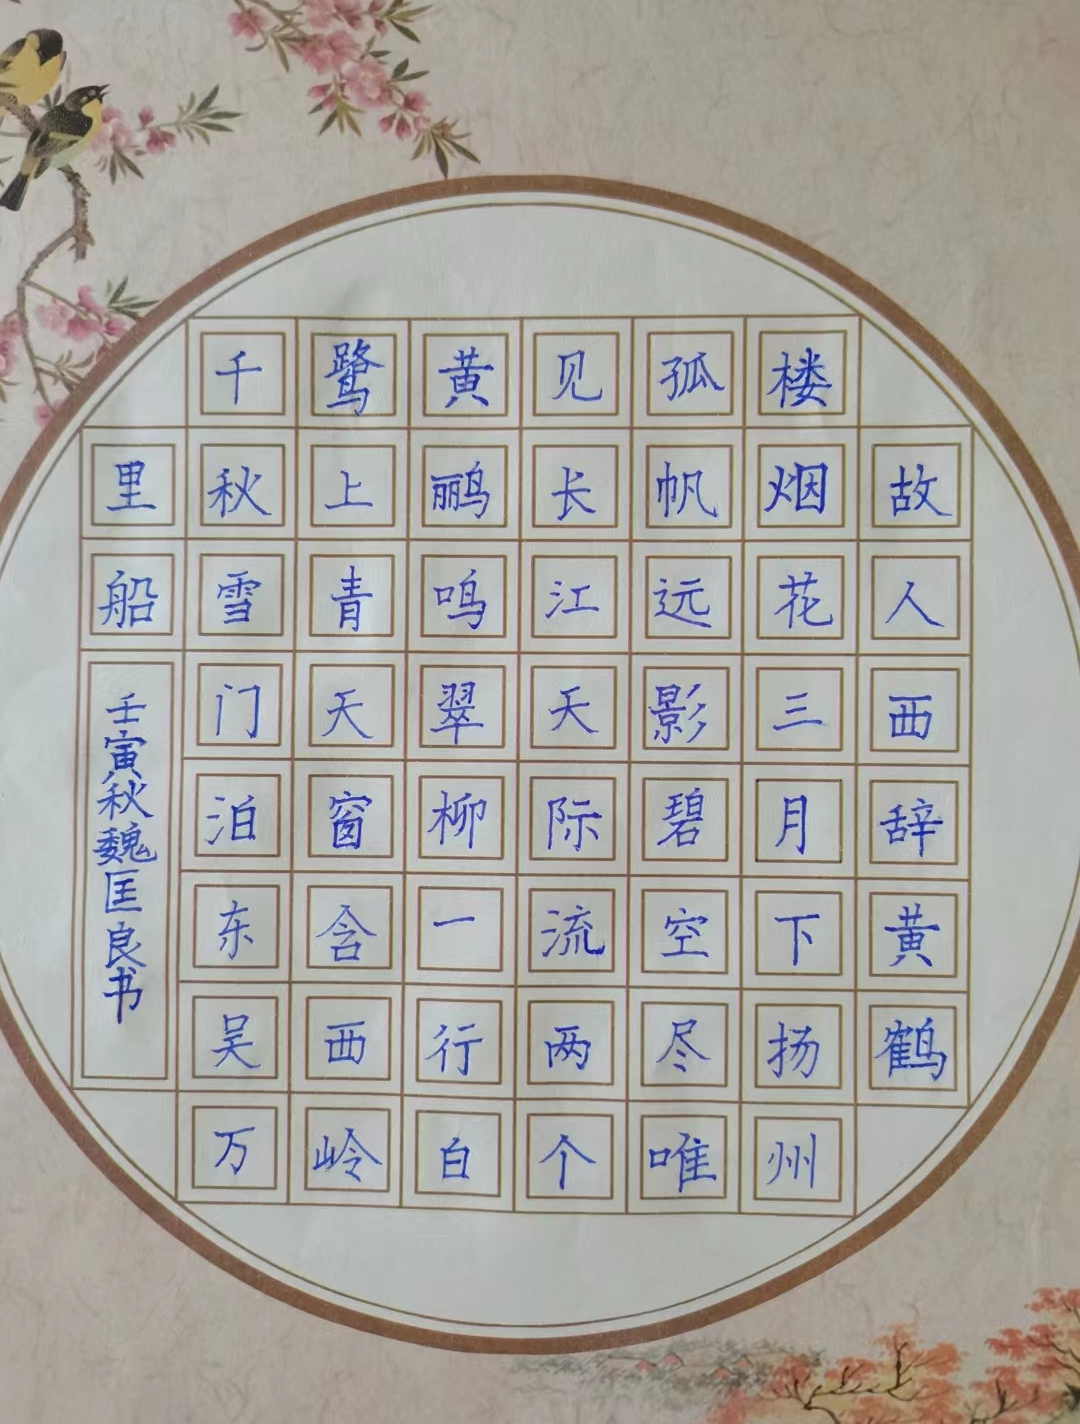 故人西辞黄鹤
楼烟花三月下扬州
孤帆远影碧空尽唯
见长江天际流两个
黄鹂鸣翠柳一行白
鹭上青天窗含西岭
千秋雪门泊东吴万
里船
壬寅秋魏匡良书